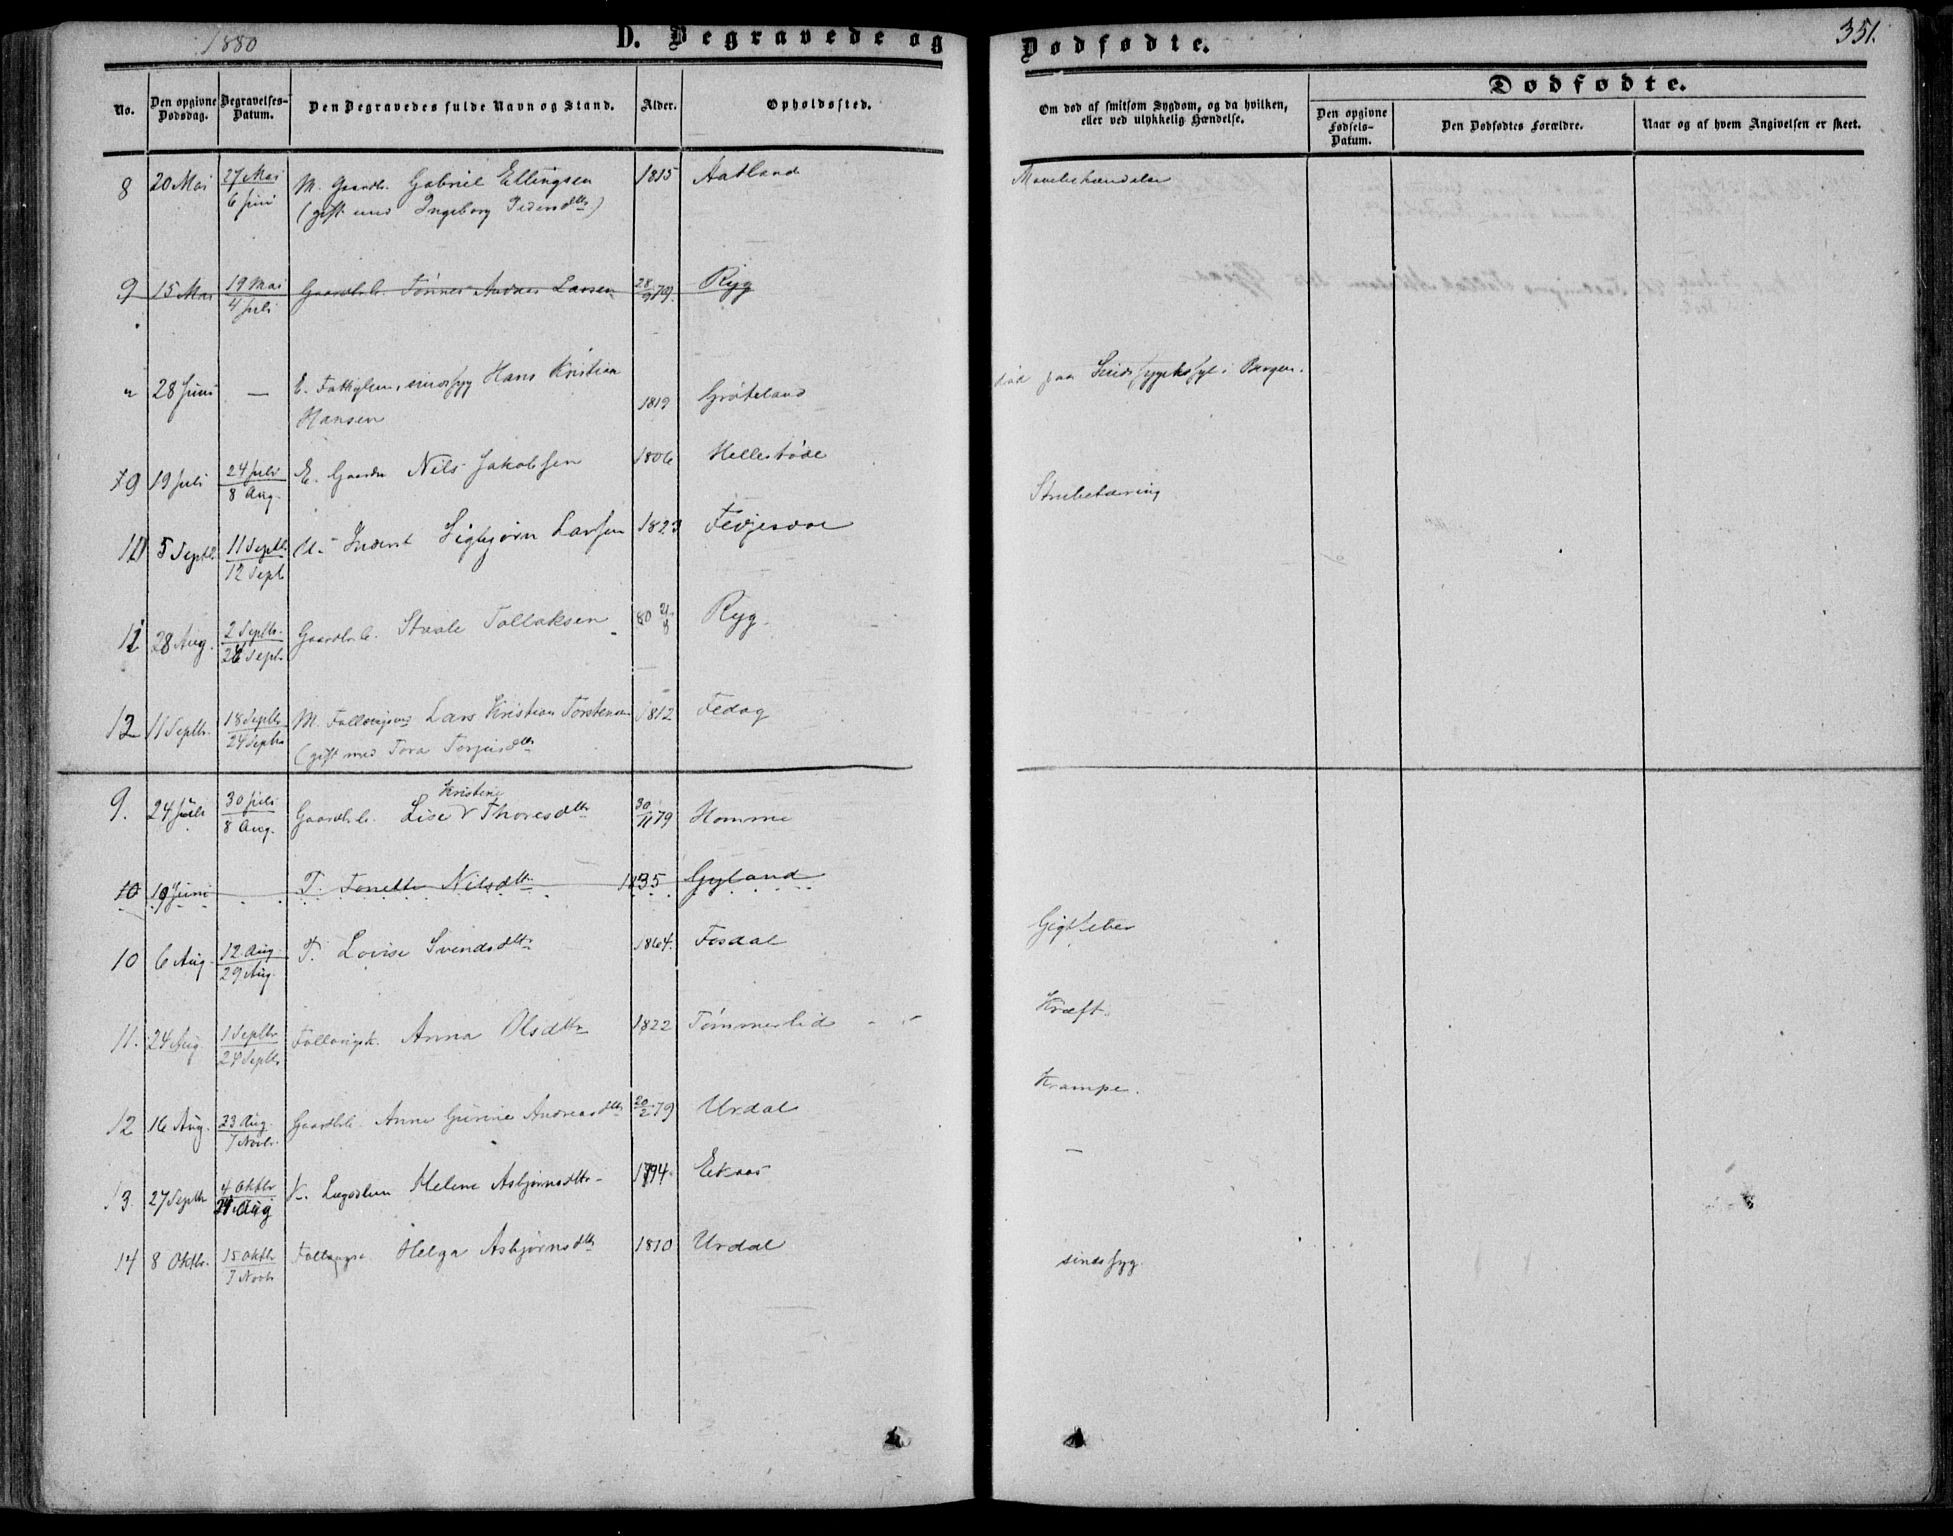 1880
D. Begravede og Dødfødte.
351.
No.
Den opgivne Dødsdag.
Begravelses-Datum.
Den Begravedes fulde Navn og Stand.
Alder.
Opholdssted.
Om død af smitsom Sygdom, og da hvilken, eller ved ulykkelig Hændelse.
Dødfødte.
Den opgivne Fødsels-Datum.
Den Dødfødtes Forældre.
Naar og af hvem Angivelsen er skeet.
8 20 Mai 27 Mai / 6 Juni M. Gaardb. Gabriel Ellingsen 1815 Aatland
(gift med Ingeborg Pedersdtr)
9 15 Mai 19 Mai / 4 Juli Gaardbrb. Tønnes Andreas Larsen 28/9 79. Ryg
" 28 Juni — E. Fattiglem, sindssyg Hans Kristian 1819 Grøteland død paa Sindssygehosp. i Bergen.
Hansen
9 19 Juli 24 Juli / 8 Aug. E. Gaardm Nils Jakobsen 1806 Hellestøle Strubetæring
10 5 Septb. 11 Septb. / 12 Sept U. Inderst Sigbjørn Larsen 1823
11 28 Aug. 2 Septbr. / 26 Septb. Gaardbrb. Staale Tollaksen 80 21/8 Ryg.
12 11 Septbr. 18 Septbr / 24 Septbr M. Lars Kristian Torstensen 1812 Fedog
(gift med Tora Torjusdtr
9. 24 Juli 30 Juli / 8 Aug. Gaardbrb. Lise Kristine Thoresdtr 30/11 79 Homme
10 19 Juni T. Tonette Nilsdtr 1835 Gyland
10 6 Aug. 12 Aug / 29 Aug. T. Lovise Svendsdtr 1864. Fosdal Gigtfeber
11. 24 Aug. 1 Septbr / 24 Septbr Anna Olsdtr 1822 Tømmerlid Kræft.
12 16 Aug. 23 Aug. / 7 Novbr. Gaardbrb. Anne Gurine Andreasdtr 20/2 79 Urdal Krampe.
13 27 Septbr 4 Oktbr / 24 Aug K. Lægdslem Helene Asbjørnsdtr 1794 Eikaas —
14 8 Oktbr. 15 Oktbr / 7 Novbr Helga Asbjørnsdtr 1810 Urdal sindssyg.